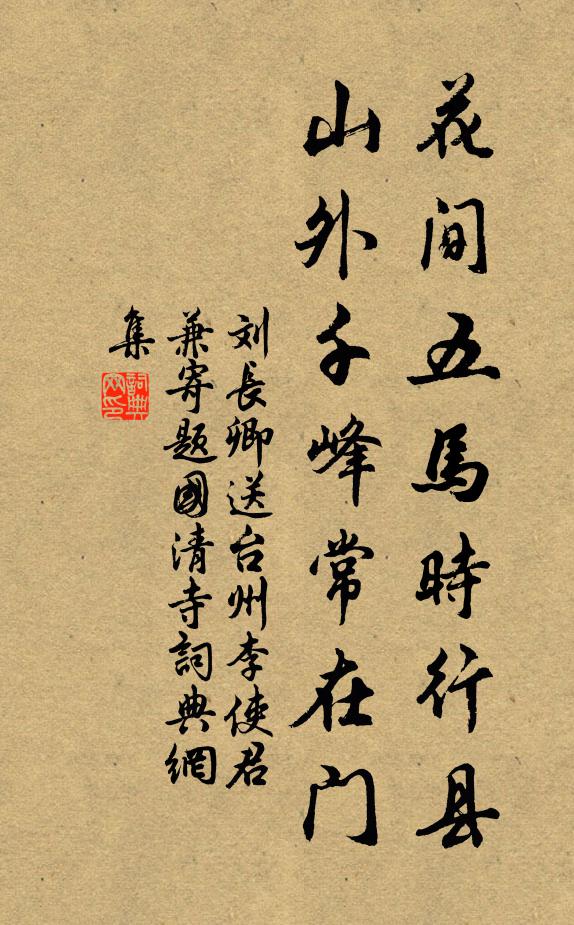 花间五馬時行县
山外千峰常在门
刘長卿送台州李使君
兼寄题國清寺詞典網
集
詞典网印